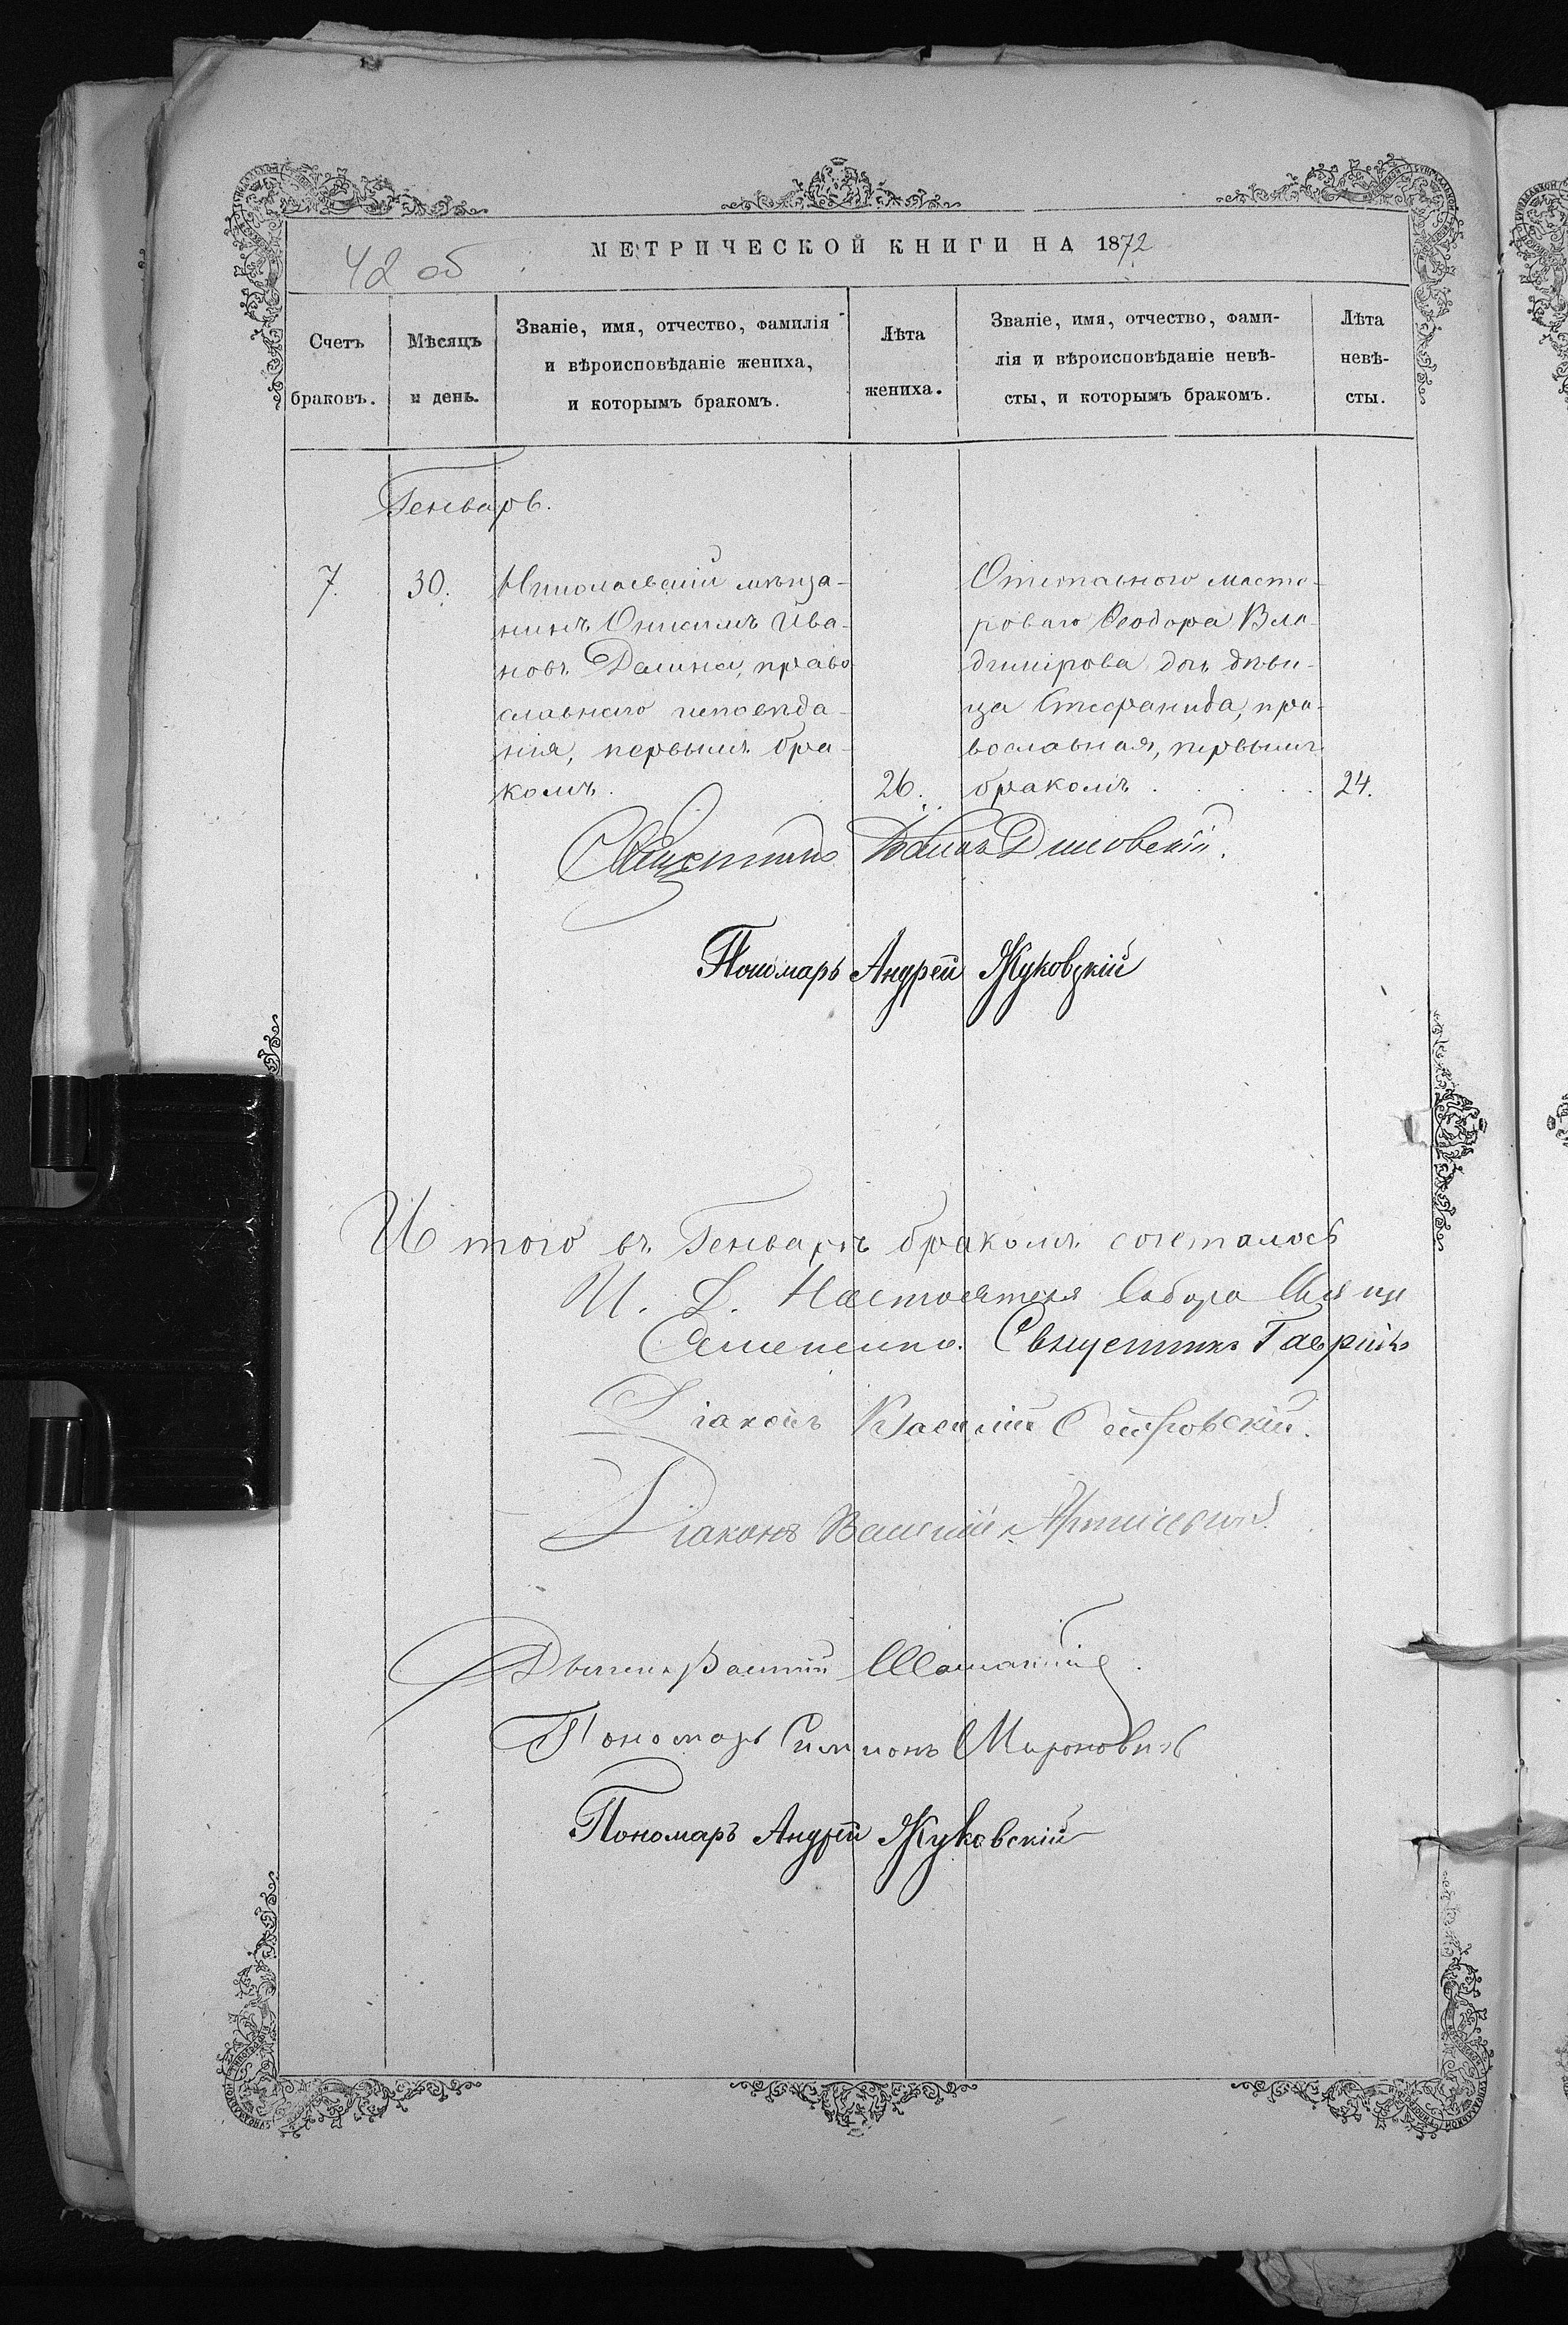 42 об
МЕТРИЧЕСКОЙ КНИГИ НА 1872
Счетъ браковъ.
Мѣсяцъ и день.
Званіе, имя, отчество, фамилія
и вѣроисповѣданіе жениха,
и которымъ бракомъ.
Лѣта жениха.
Званіе, имя, отчество, фами-
лія и вѣроисповѣданіе невѣ-
сты, и которымъ бракомъ.
Лѣта невѣ-
сты.
Генварь.
7. 30.
Николаевскій мѣща-
нинъ Онисимъ Ива-
новъ Далина, право
славнаго исповѣда-
нія, первымъ бра-
комъ. 26.
Отставного масте-
роваго Ѳеодора Вла-
димірова дочь дѣви-
ца Стефанида, пра-
вославная, первымъ
бракомъ . . . . . 24.
Священникъ
Пономарь Андрей Жуковскій
Итого въ Генварѣ бракомъ сочеталось
И. д. Настоятеля Собора Священ
Священникъ
Діаконъ Василій
Діаконъ Василій
Василій
Пономарь Симеонъ Мироновичъ
Пономарь Андрей Жуковскій